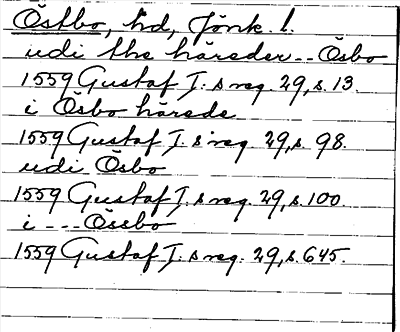 Östbo, hd, Jönk. l.
udi the häreder -- Ösbo
1559 Gustaf I:s reg. 29, s. 13.
i Ösbo härede
1559 Gustaf I:s reg. 29, s. 98.
udi Ösbo
1559 Gustaf I:s reg. 29, s. 100.
i --- Össbo
1559 Gustaf I:s reg. 29, s. 645.